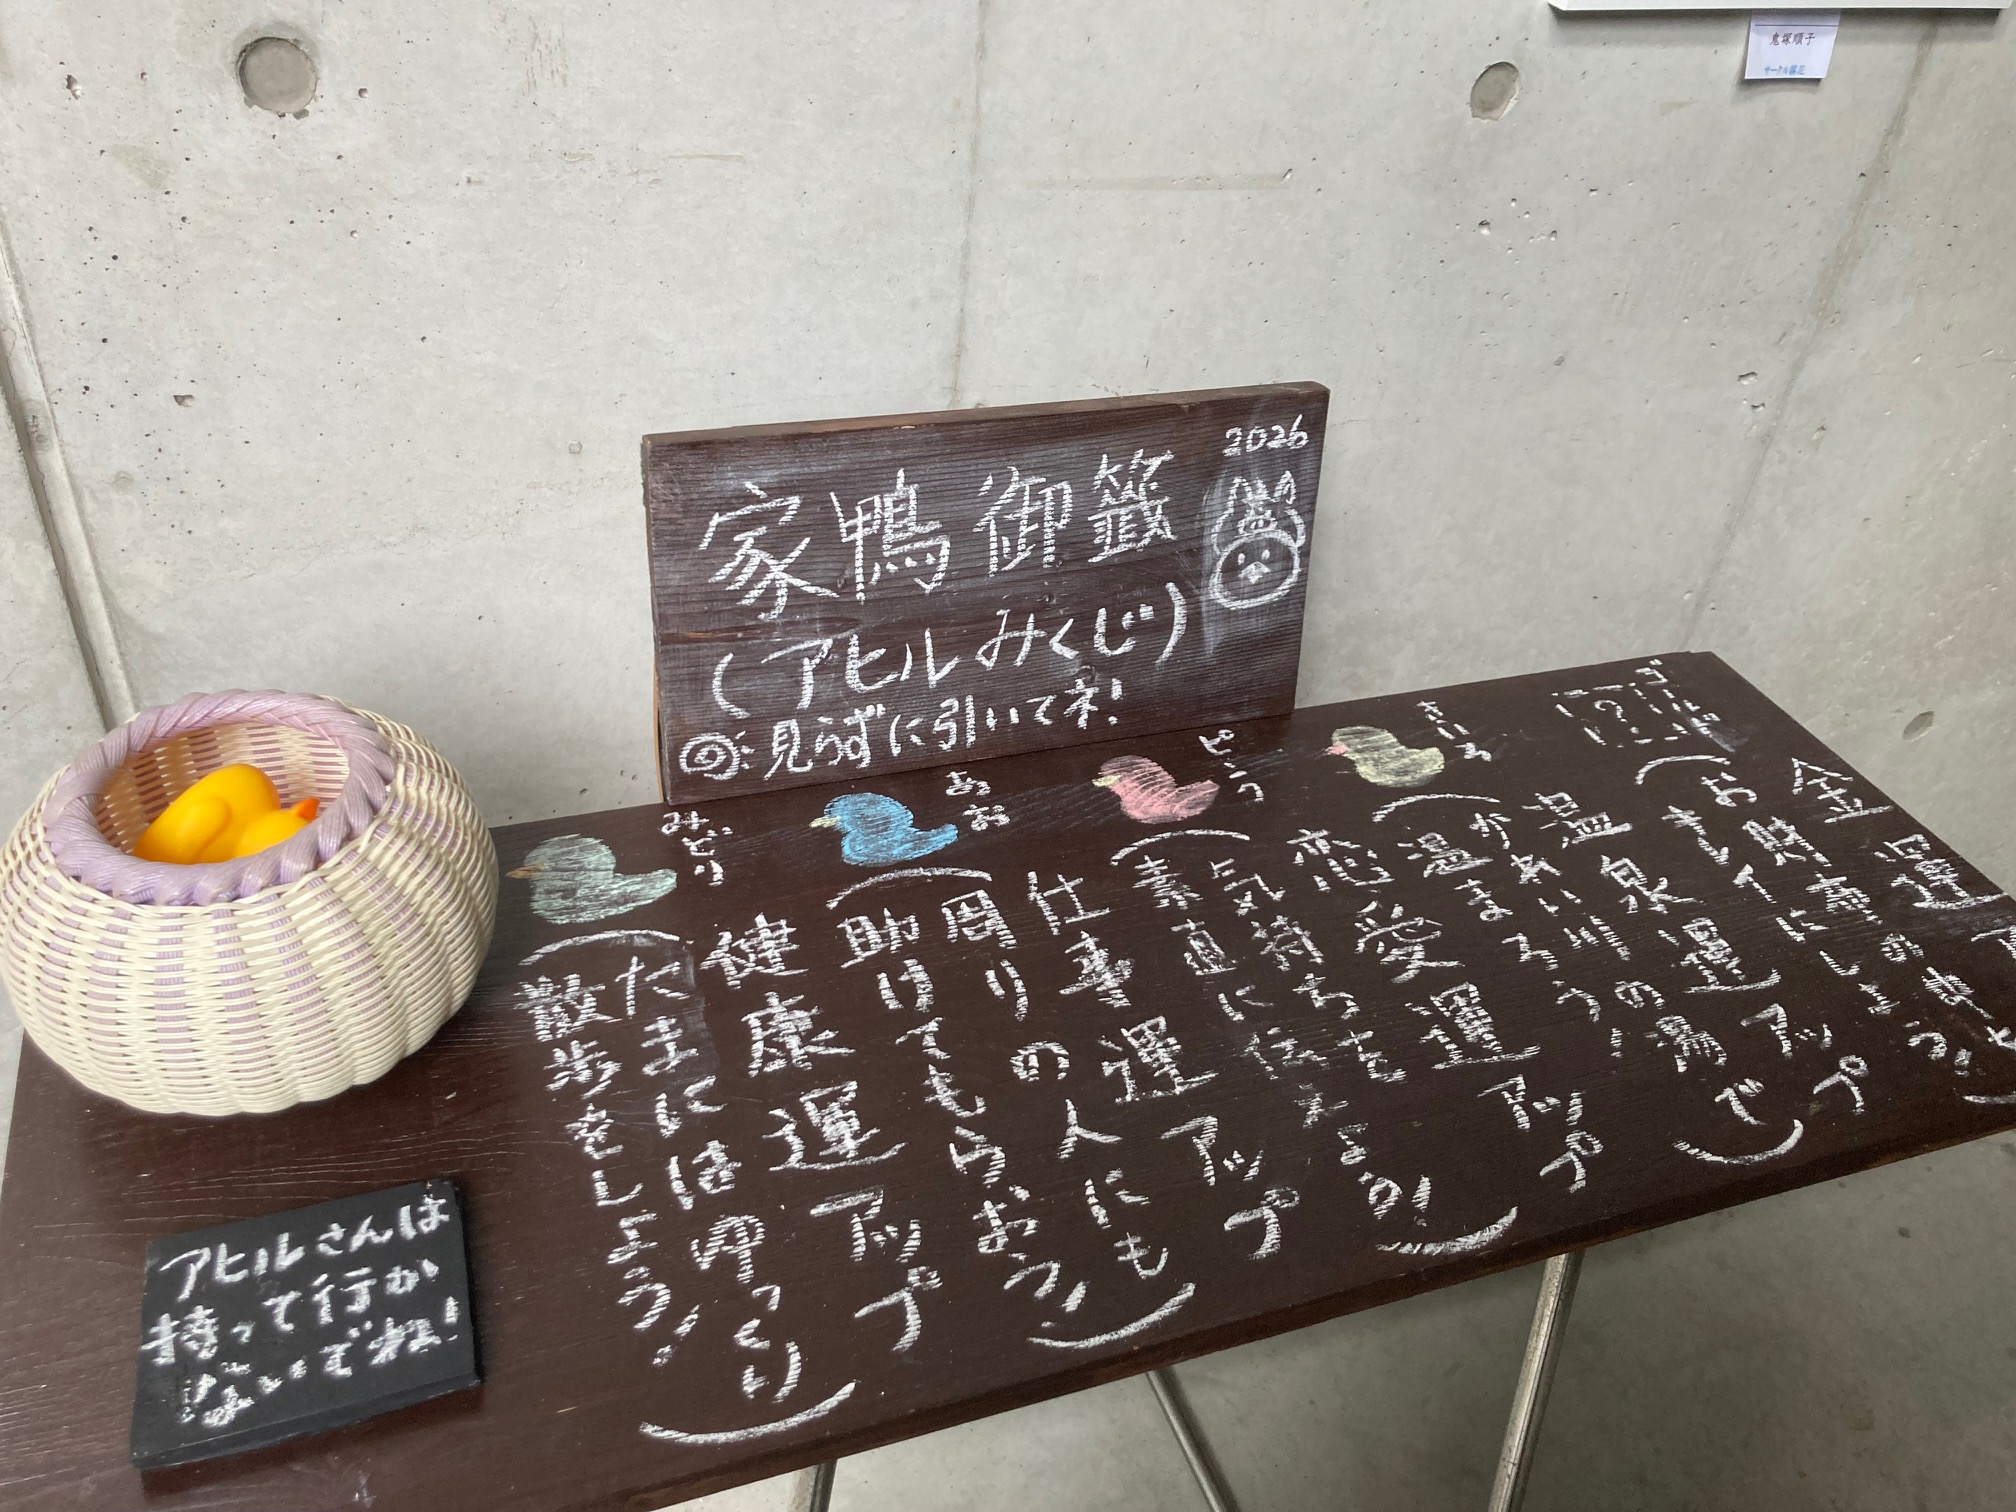 鬼塚順子
サークル霧花
2026
家鴨御籤
(アヒルみくじ)
見らずに引いてネ!
ゴールド
?
金運アップ
お財布の中
きれいにしよう!
きいろ
温泉運アップ
(かあい川の湯で
温まろう!)
ピンク
恋愛運アップ
(気持ちを
素直に伝えよう!)
あお
仕事運アップ
(周りの人にも
助けてもらおう!)
みどり
健康運アップ
(たまにはゆっくり
散歩をしよう!)
アヒルさんは
持って行か
ないでね!